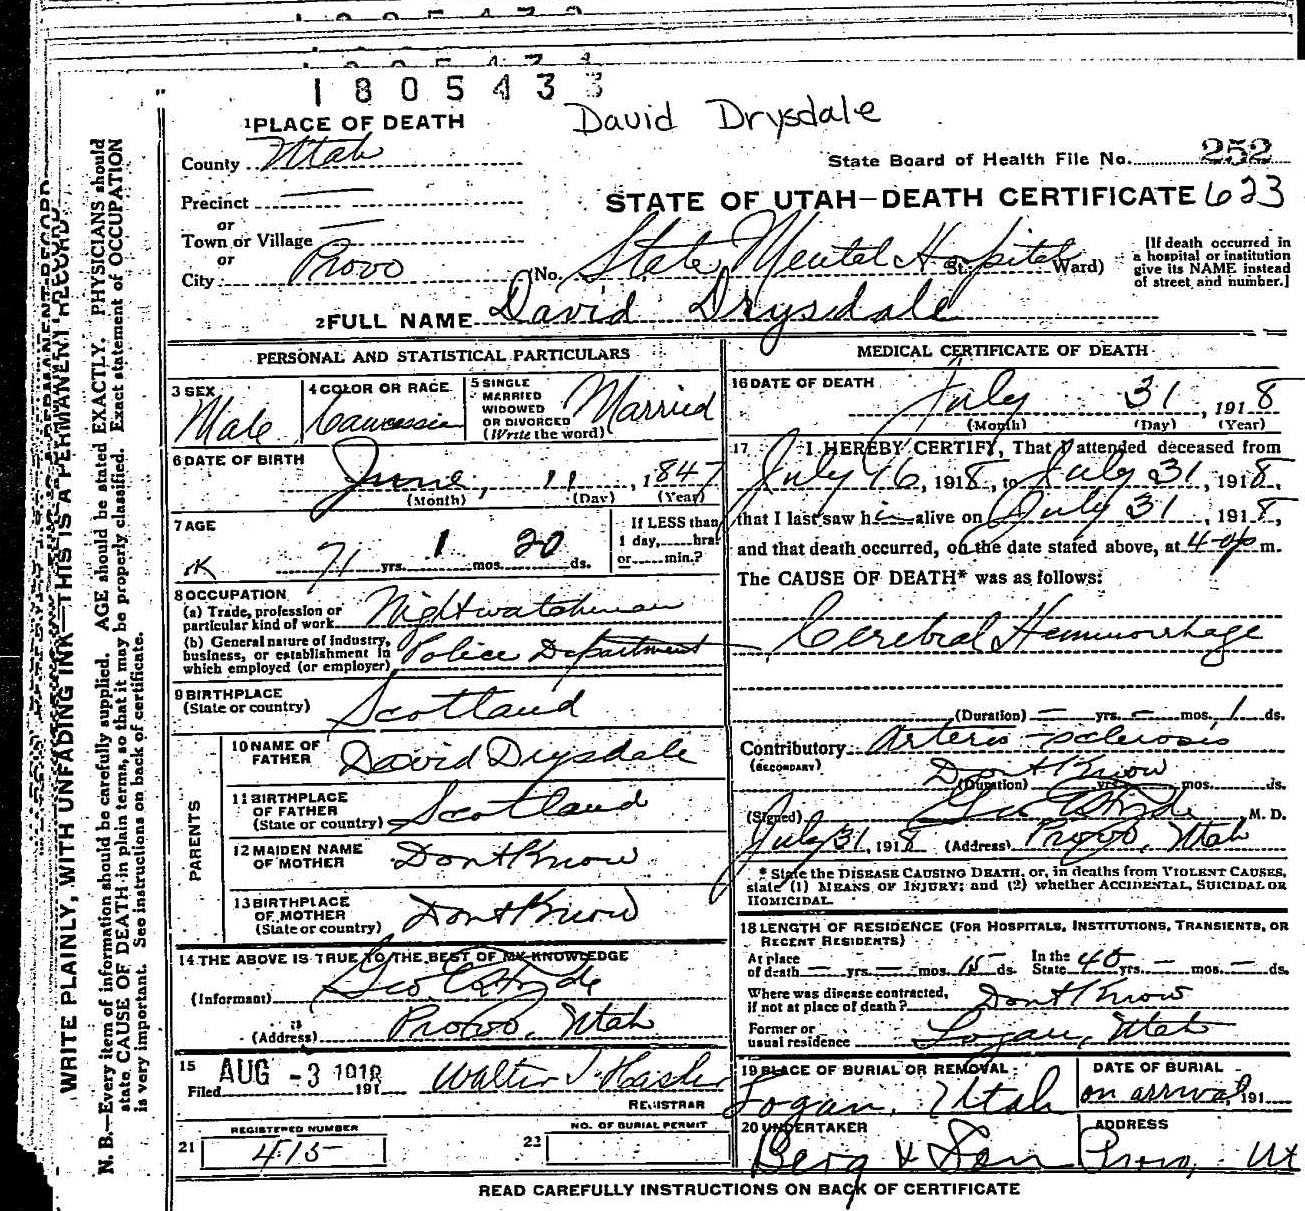 1805433
David Drysdale
1 PLACE OF DEATH
County Utah
State Board of Health File No. 252
Precinct —
STATE OF UTAH—DEATH CERTIFICATE 623
or
Town or Village —
or
City Provo (No. State Mental Hospital St. Ward)
[If death occurred in
a hospital or institution
give its NAME instead
of street and number.]
2 FULL NAME David Drysdale
PERSONAL AND STATISTICAL PARTICULARS
3 SEX
Male
4 COLOR OR RACE
Caucassian
5 SINGLE
MARRIED
WIDOWED
OR DIVORCED
(Write the word)
Married
6 DATE OF BIRTH
June, 11, 1847
(Month) (Day) (Year)
7 AGE
71 yrs. 1 mos. 20 ds.
If LESS than
1 day, hrs.
or min.?
8 OCCUPATION
(a) Trade, profession or
particular kind of work Nightwatchman
(b) General nature of industry,
business, or establishment in
which employed (or employer) Police Department
9 BIRTHPLACE
(State or country) Scotland
PARENTS
10 NAME OF
FATHER David Drysdale
11 BIRTHPLACE
OF FATHER
(State or country) Scotland
12 MAIDEN NAME
OF MOTHER Dont Know
13 BIRTHPLACE
OF MOTHER
(State or country) Dont Know
14 THE ABOVE IS TRUE TO THE BEST OF MY KNOWLEDGE
(Informant) Geo E Hyde
(Address) Provo, Utah
15
Filed AUG -3 1918 191 Walter T Hasler
REGISTRAR
REGISTERED NUMBER
21 415
NO. OF BURIAL PERMIT
23
MEDICAL CERTIFICATE OF DEATH
16 DATE OF DEATH
July 31, 1918
(Month) (Day) (Year)
17 I HEREBY CERTIFY, That I attended deceased from
July 16, 1918, to July 31, 1918,
that I last saw him alive on July 31, 1918,
and that death occurred, on the date stated above, at 4 m.
The CAUSE OF DEATH* was as follows:
Cerebral Hemmorrhage
(Duration) — yrs. — mos. 1 ds.
Contributory Arterio-sclerosis
(SECONDARY)
(Duration) Dont Know yrs. mos. ds.
(Signed) Geo E Hyde M. D.
July 31, 1918 (Address) Provo, Utah
* State the DISEASE CAUSING DEATH, or, in deaths from VIOLENT CAUSES,
state (1) MEANS OF INJURY; and (2) whether ACCIDENTAL, SUICIDAL OR
HOMICIDAL.
18 LENGTH OF RESIDENCE (FOR HOSPITALS, INSTITUTIONS, TRANSIENTS, OR
RECENT RESIDENTS)
At place
of death — yrs. — mos. 15 ds.
In the
State 40 yrs. — mos. — ds.
Where was disease contracted,
if not at place of death? Dont Know
Former or
usual residence Logan, Utah
19 PLACE OF BURIAL OR REMOVAL
Logan, Utah
DATE OF BURIAL
on arrival, 191
20 UNDERTAKER
Berg & Son
ADDRESS
Provo, Ut
READ CAREFULLY INSTRUCTIONS ON BACK OF CERTIFICATE
WRITE PLAINLY, WITH UNFADING INK—THIS IS A PERMANENT RECORD
N. B.—Every item of information should be carefully supplied. AGE should be stated EXACTLY. PHYSICIANS should
state CAUSE OF DEATH in plain terms, so that it may be properly classified. Exact statement of OCCUPATION
is very important. See instructions on back of certificate.